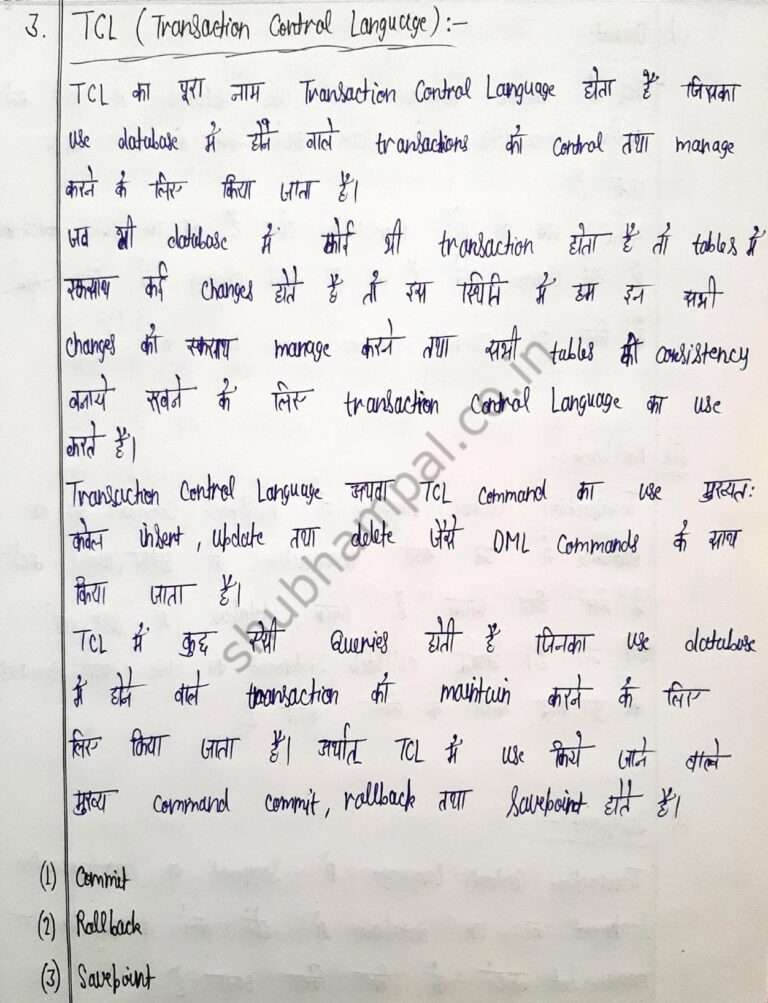 3. TCL (Transaction Control Language):-
TCL का पूरा नाम Transaction Control Language होता है जिसका
use database में होने वाले transactions को control तथा manage
करने के लिए किया जाता है।
जब भी database में कोई भी transaction होता है तो tables में
एकसाथ कई changes होते है तो इस स्थिति में हम इन सभी
changes को एकसाथ manage करने तथा सभी tables की consistency
बनाये रखने के लिए transaction Control Language का use
करते है।
Transaction Control Language अथवा TCL Command का use मुख्यतः
केवल insert, update तथा delete जैसे DML Commands के साथ
किया जाता है।
TCL में कुछ ऐसी Queries होती है जिनका use database
में होने वाले transaction को maintain करने के लिए
लिए किया जाता है। अर्थात् TCL में use किये जाने वाले
मुख्य command commit, rollback तथा Savepoint होते है।
(1) Commit
(2) Rollback
(3) Savepoint
shubhampal.co.in